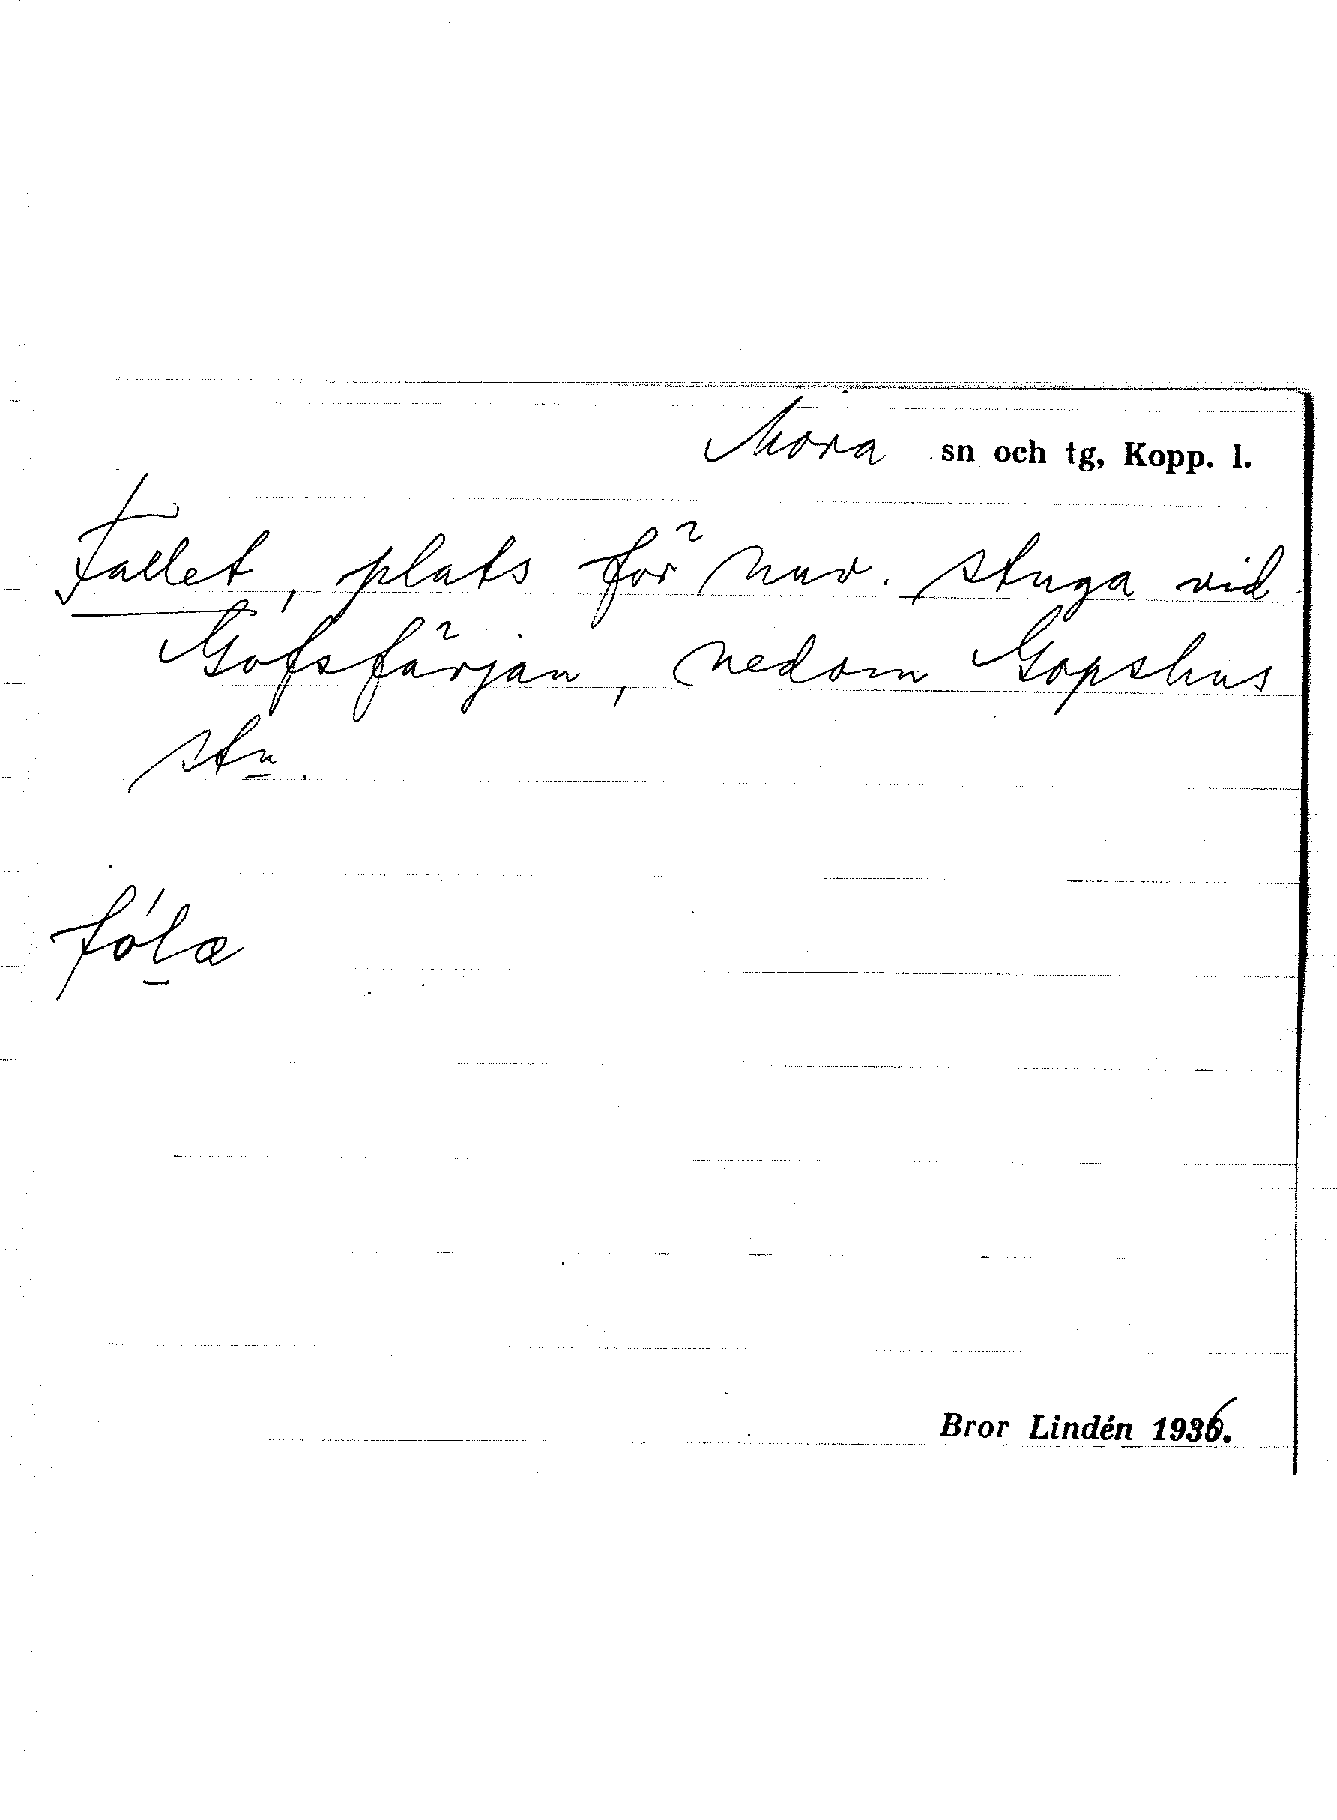 Mora sn och tg, Kopp. l.
Fallet, plats för nuv. stuga vid
Gofsfärjan, nedom Gopshus
stn.
fól̲æ
Bror Lindén 1936.